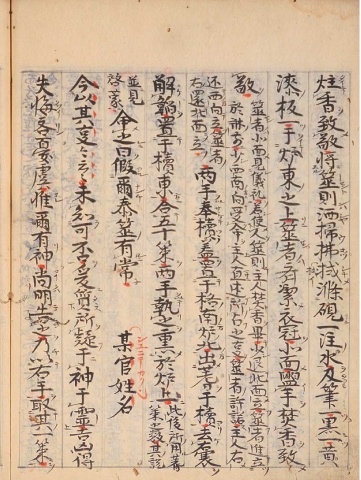 炷香致敬將筮則洒掃拂拭滌硯一注水及筆一黒一黄
漆板一于炉東々上筮者斉潔衣冠北面盥手焚香致
敬
筮者北面見儀礼若使人筮則主人焚香畢少退北面立筮者進立
於牀前少西南向受命主人直述所占之事筮者許諾主人右
还西向立筮者
右還北西立
両手奉櫝蓋置于格南炉北出蓍于櫝去囊
解韜置于櫝東合五十策両手執之熏於炉上
此後所用蓍
策之数其説
並見
啓蒙
命之曰假爾泰筮有常
某官姓名
今以某事云云未知可不爰質所疑于神于霊吉凶得
失悔吝憂虞惟爾有神尚明告之乃以右手取其一策